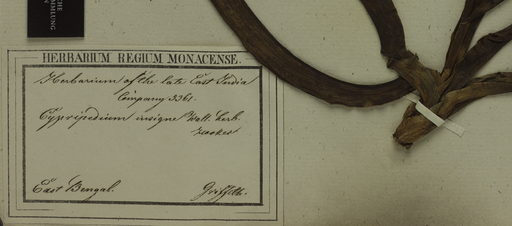 THE
SAMMLUNG
HERBARIUM REGIUM MONACENSE.
Herbarium of the late East India
Company 5361.
Cypripedium insigne Wall. herb.
East Bengal. Griffith.